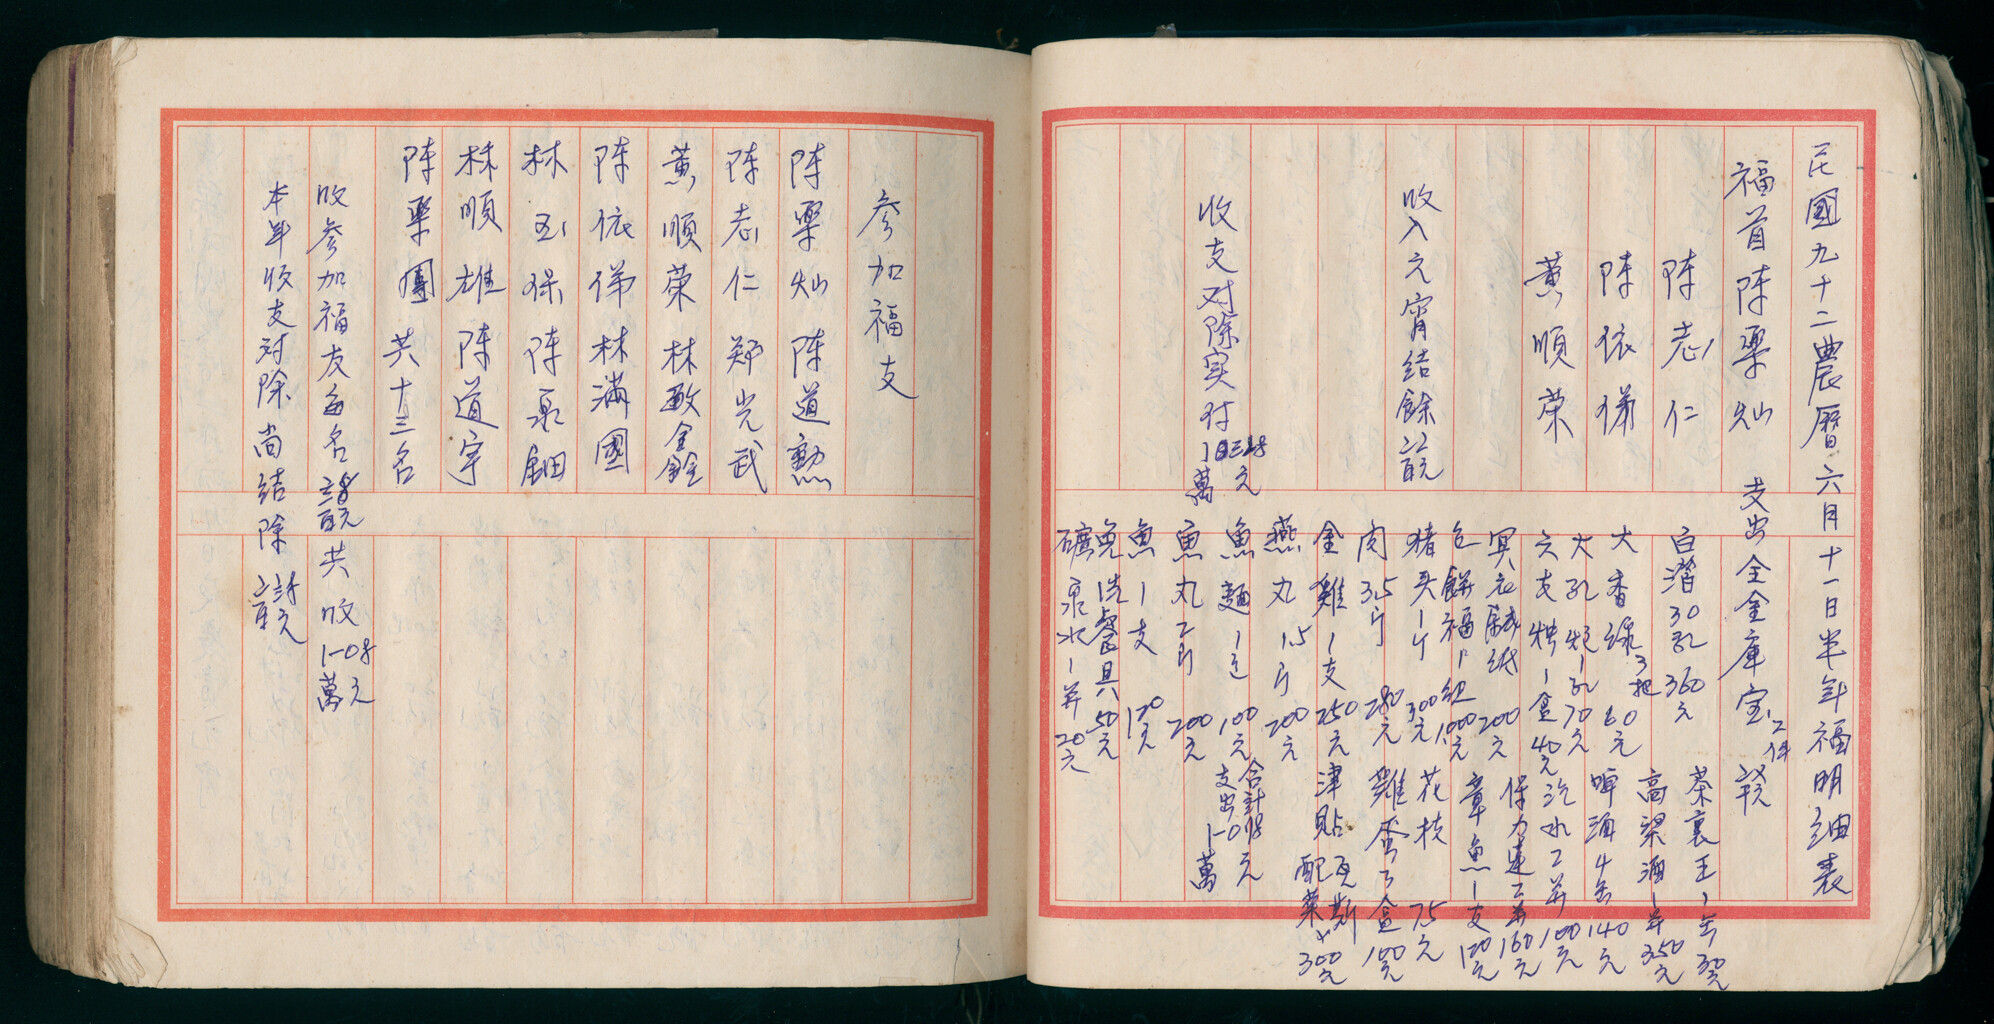 民國九十二農曆六月十一日半年福明細表
福首 陈學灿
陈志仁
陈依俤
黃順荣
收入元宵结餘
收支对除实付
萬 元
支出 全金庫宝 2件
白㵮30孔 360元
大香綠3把 60元
大孔炬1孔 70元
六支炮1盒 40元
冥衣 紙 200元
包餅福1組 1000元
猪头1个 300元
肉3.5斤 280元
全雞1支 250元
燕丸1.5斤 200元
魚麵1包 100元
魚丸2斤 200元
魚1支 120元
免洗餐具 50元
礦泉水1并 20元
茶裏王1缶 30元
高梁酒1并 350元
啤酒4缶 140元
汽水2并 100元
保力達2并 160元
章魚1支 120元
花枝 75元
雞蛋3盒 100元
津貼瓦斯
配菜 300元
合計
支出 萬 元
參加福支
陈學灿 陈道勲
陈志仁 郑光武
黃順荣 林敢金銓
陈依俤 林满國
林玉保 陈泉鈿
林順雄 陈道宇
陈學團 共十三名
收參加福友每名 共收 萬元
本年收支对除尚结除